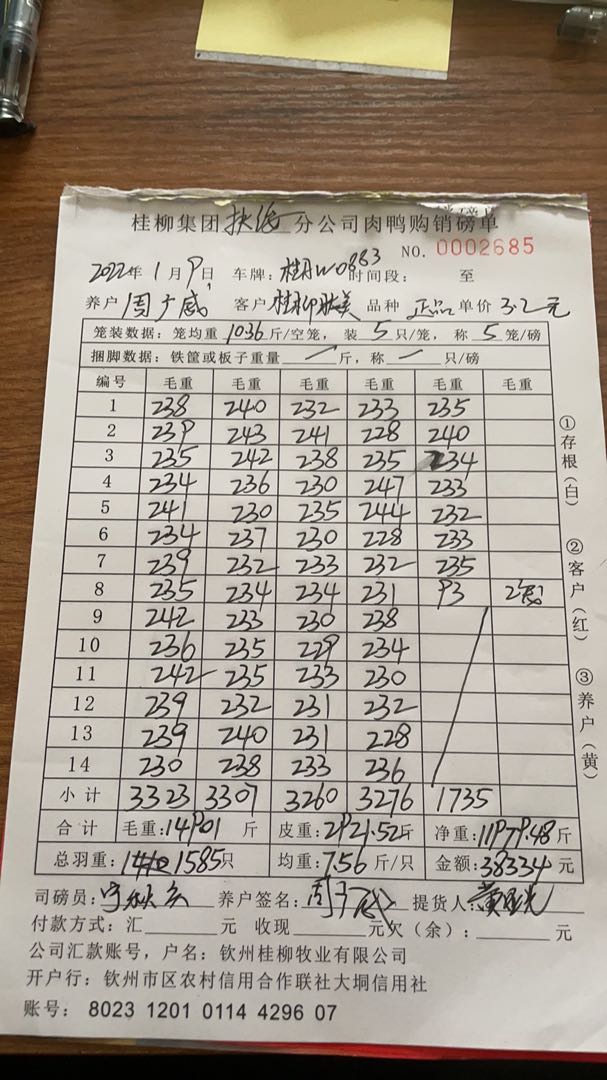 桂柳集团扶绥分公司肉鸭购销磅单
NO. 0002685
2022年 1月 9日 车牌：桂AW0883 时间段： 至
养户 周广威 客户 桂柳肽美 品种 正品 单价 3.2元
笼装数据：笼均重 1036 斤/空笼，装 5 只/笼，称 5 笼/磅
捆脚数据：铁筐或板子重量 一 斤，称 一 只/磅
编号 毛重 毛重 毛重 毛重 毛重 毛重
1 238 240 232 233 235
2 239 243 241 228 240
3 235 242 238 235 234
4 234 236 230 247 233
5 241 230 235 244 232
6 234 237 230 228 233
7 239 232 233 232 235
8 235 234 234 231 93 2笼
9 242 233 230 238
10 236 235 229 234
11 242 235 233 230
12 239 232 231 232
13 239 240 231 228
14 230 238 233 236
小计 3323 3307 3260 3276 1735
合计 毛重：14901 斤 皮重：2921.52斤 净重：11979.48斤
总羽重： 1585只 均重：7.56 斤/只 金额：38334 元
司磅员： 养户签名： 提货人：
付款方式：汇 元 收现 元欠（余）： 元
公司汇款账号，户名：钦州桂柳牧业有限公司
开户行：钦州市区农村信用合作联社大垌信用社
账号： 8023 1201 0114 4296 07
①存根（白）
②客户（红）
③养户（黄）